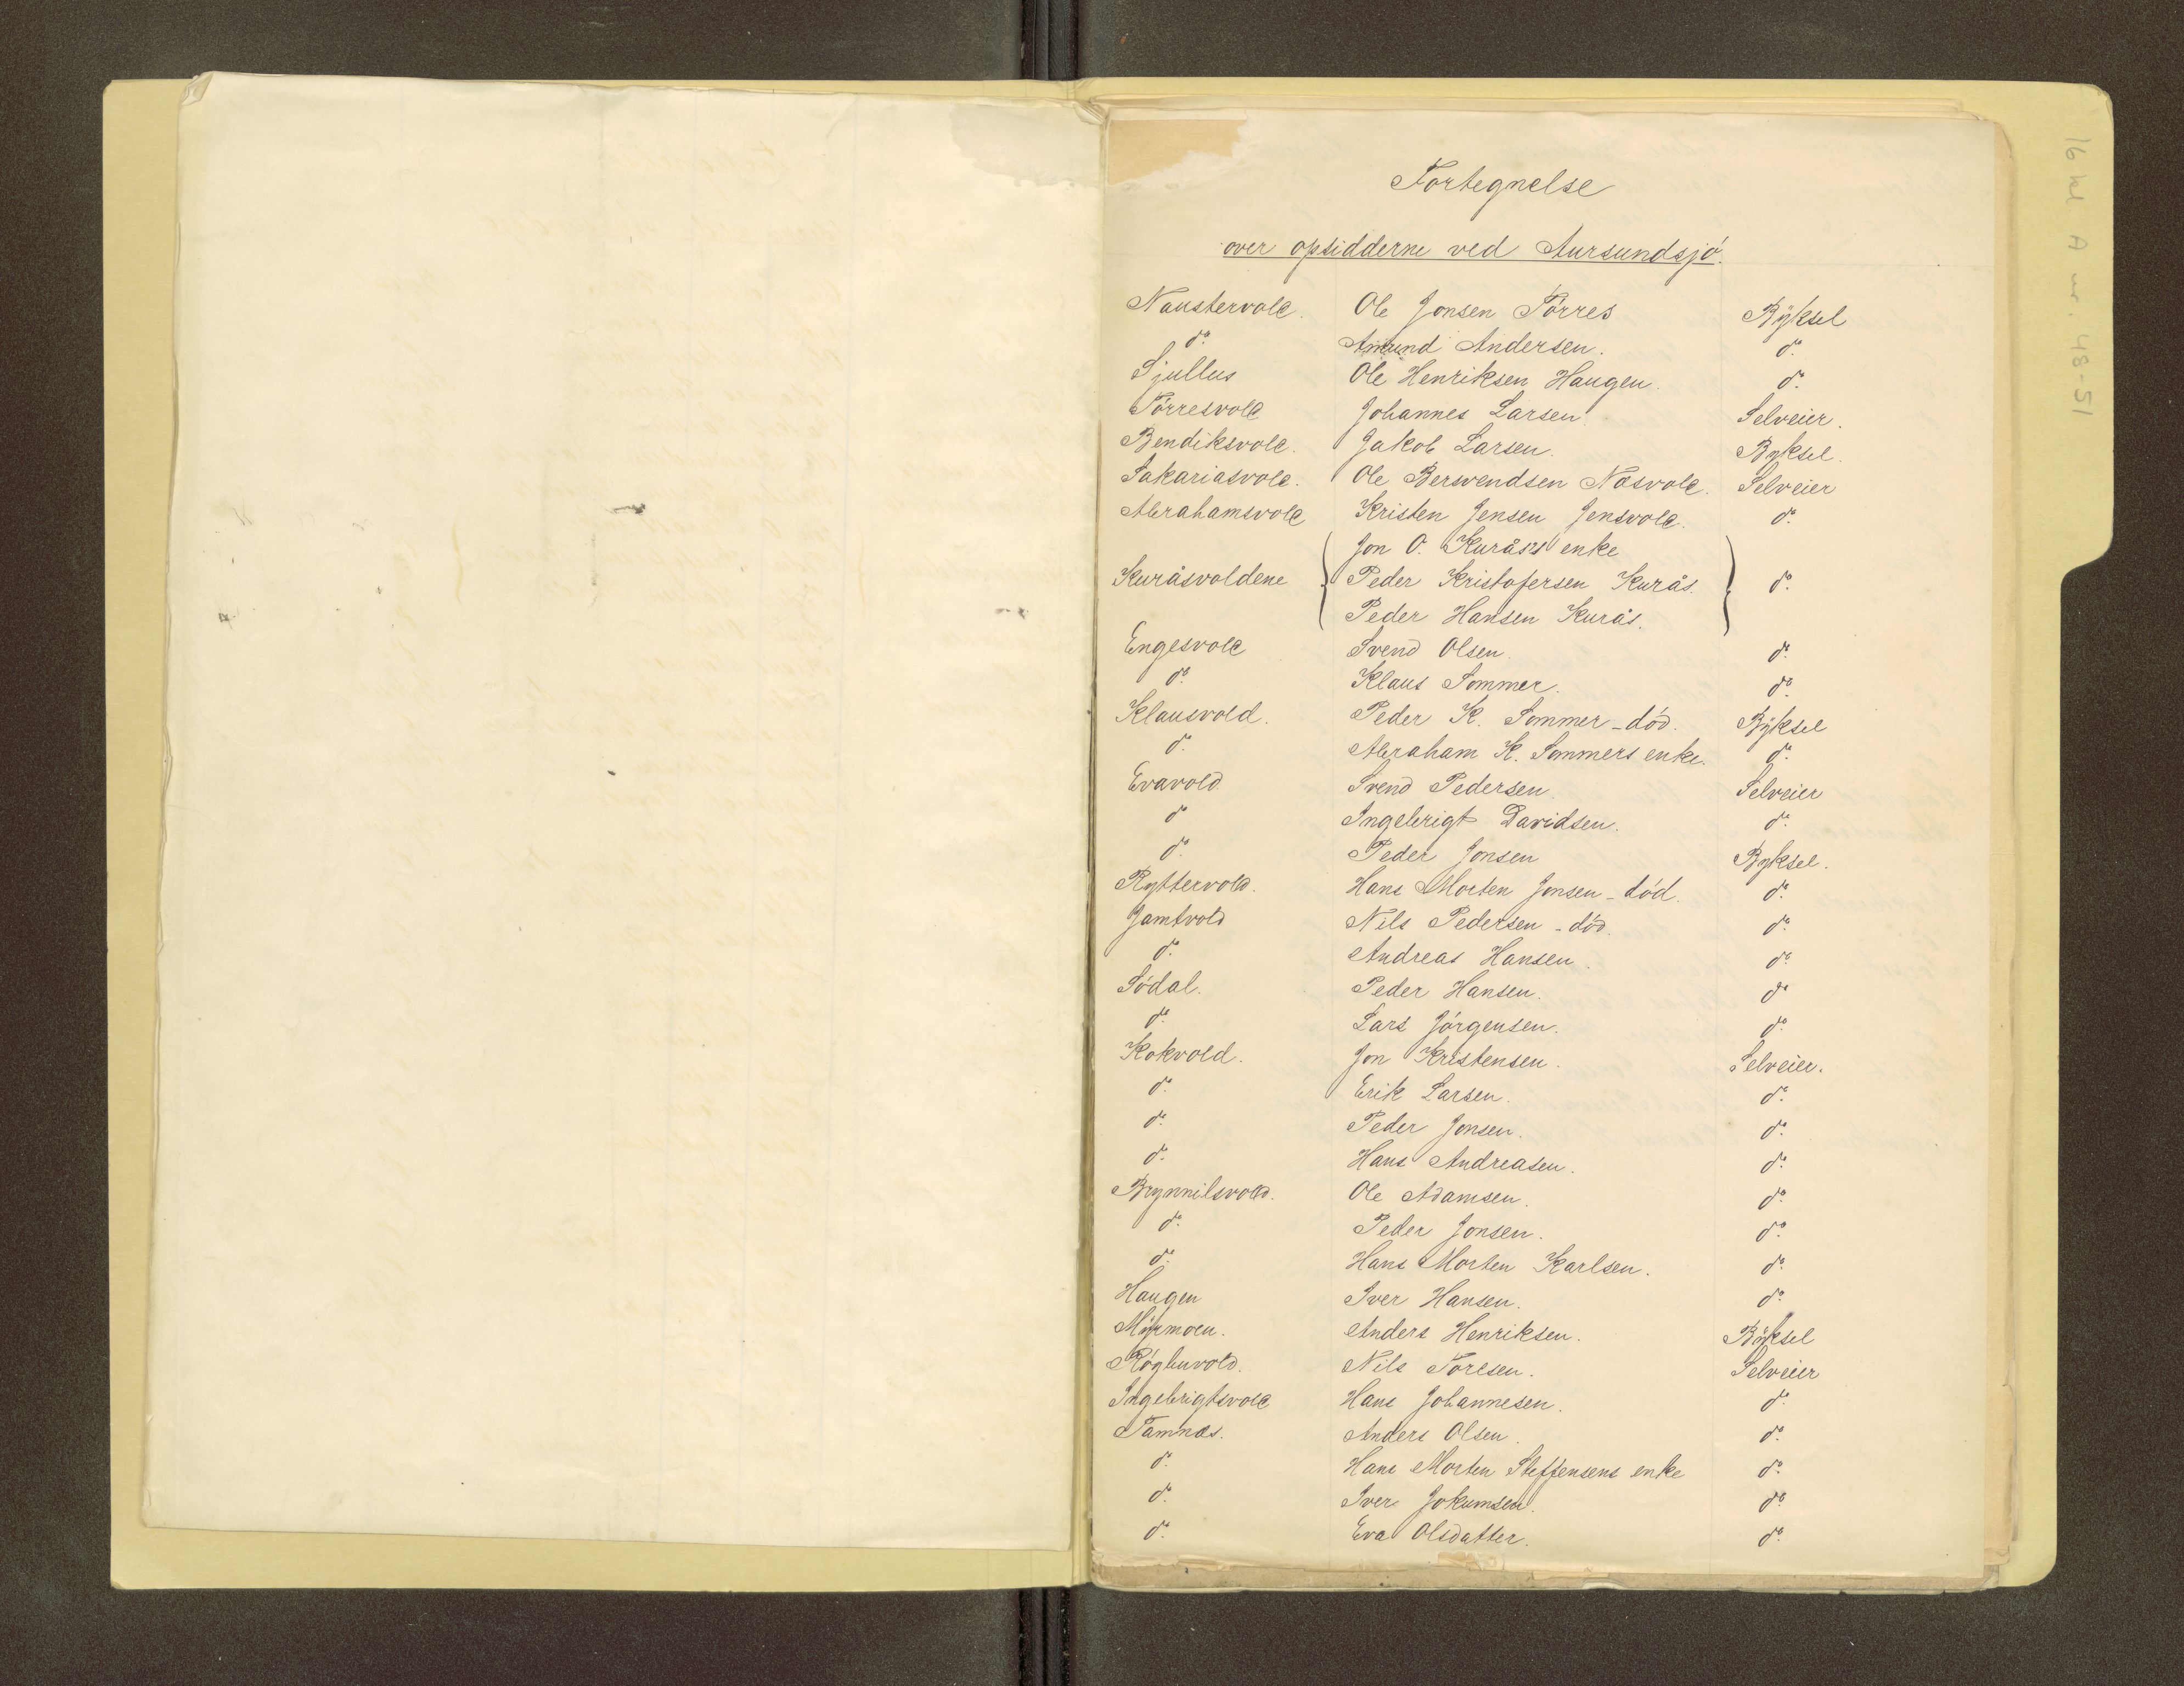 Fortegnelse
over opsidderne ved Aursundsjö.
Naustervold. Ole Jonsen Törres Bÿksel
do. Amund Andersen. do.
Sjullus Ole Henriksen Haugen. do.
Törresvold Johannes Larsen. Selveier.
Bendiksvold. Jakob Larsen. Byksel.
Sakariasvold. Ole Berwendsen Næsvold. Selveier
Abrahamsvold Kristen Jensen Jensvold. do.
Jon O. Kurås's enke
Kuråsvoldene Peder Kristofersen Kurås. do.
Peder Hansen Kurås.
Engesvold Svend Olsen. do.
do. Klaus Sommer. do.
Klausvold. Peder K. Sommer - död. Bÿksel
do. Abraham K. Sommers enke. do.
Evavold Svend Pedersen. Selveier
do Ingebrigt Davidsen. do.
do. Peder Jonsen Byksel.
Ryttervold. Hans Morten Jonsen - död. do.
Jamtvold Nils Pedersen - död. do.
do. Andreas Hansen. do.
Södal. Peder Hansen. do
do. Lars Jörgensen. do.
Kokvold. Jon Kristensen. Selveier.
do. Erik Larsen. do.
do. Peder Jonsen. do.
do. Hans Andreasen. do.
Brynnilsvold. Ole Adamsen. do.
do. Peder Jonsen. do.
do. Hans Morten Karlsen. do.
Haugen Iver Hansen. do.
Mÿrmoen. Anders Henriksen. Bÿksel
Nils Toresen. Selveier
Ingebrigtsvold Hans Johannesen. do.
Tamnæs. Anders Olsen. do.
do. Hans Morten Steffensens enke do.
do. Iver Jokumsen. do.
do. Eva Olsdatter. do.
16 kl A nr. 48-51